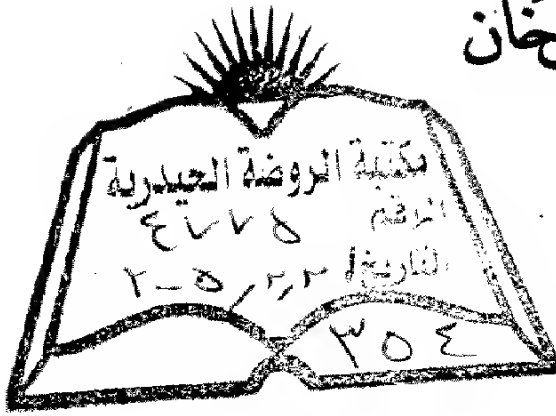 خان
مكتبة الروضة الحيدرية
الرقم ٤٧٧٥
التاريخ
٣٥٤